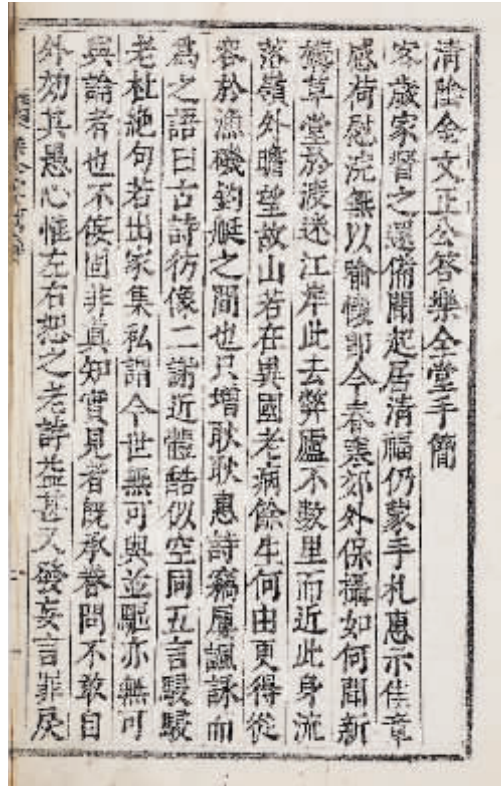 清陰金文正公答樂全堂手簡
客歲家督之還備聞起居清福仍蒙手札惠示佳章
感荷慰浣無以喻懷卽今春寒郊外保攝如何聞新
構草堂於渡迷江岸此去弊廬不數里而近此身流
落嶺外瞻望故山若在異國老病餘生何由更得從
容於漁磯釣艇之間也只增耿耿惠詩竊屢諷詠而
爲之語曰古詩彷像二謝近體酷似空同五言駸駸
老杜絶句若出家集私謂今世無可與並駈亦無可
與論者也不侫固非真知實見者旣承眷問不敢自
外効其愚心惟左右恕之老誖益甚又發妄言罪戾